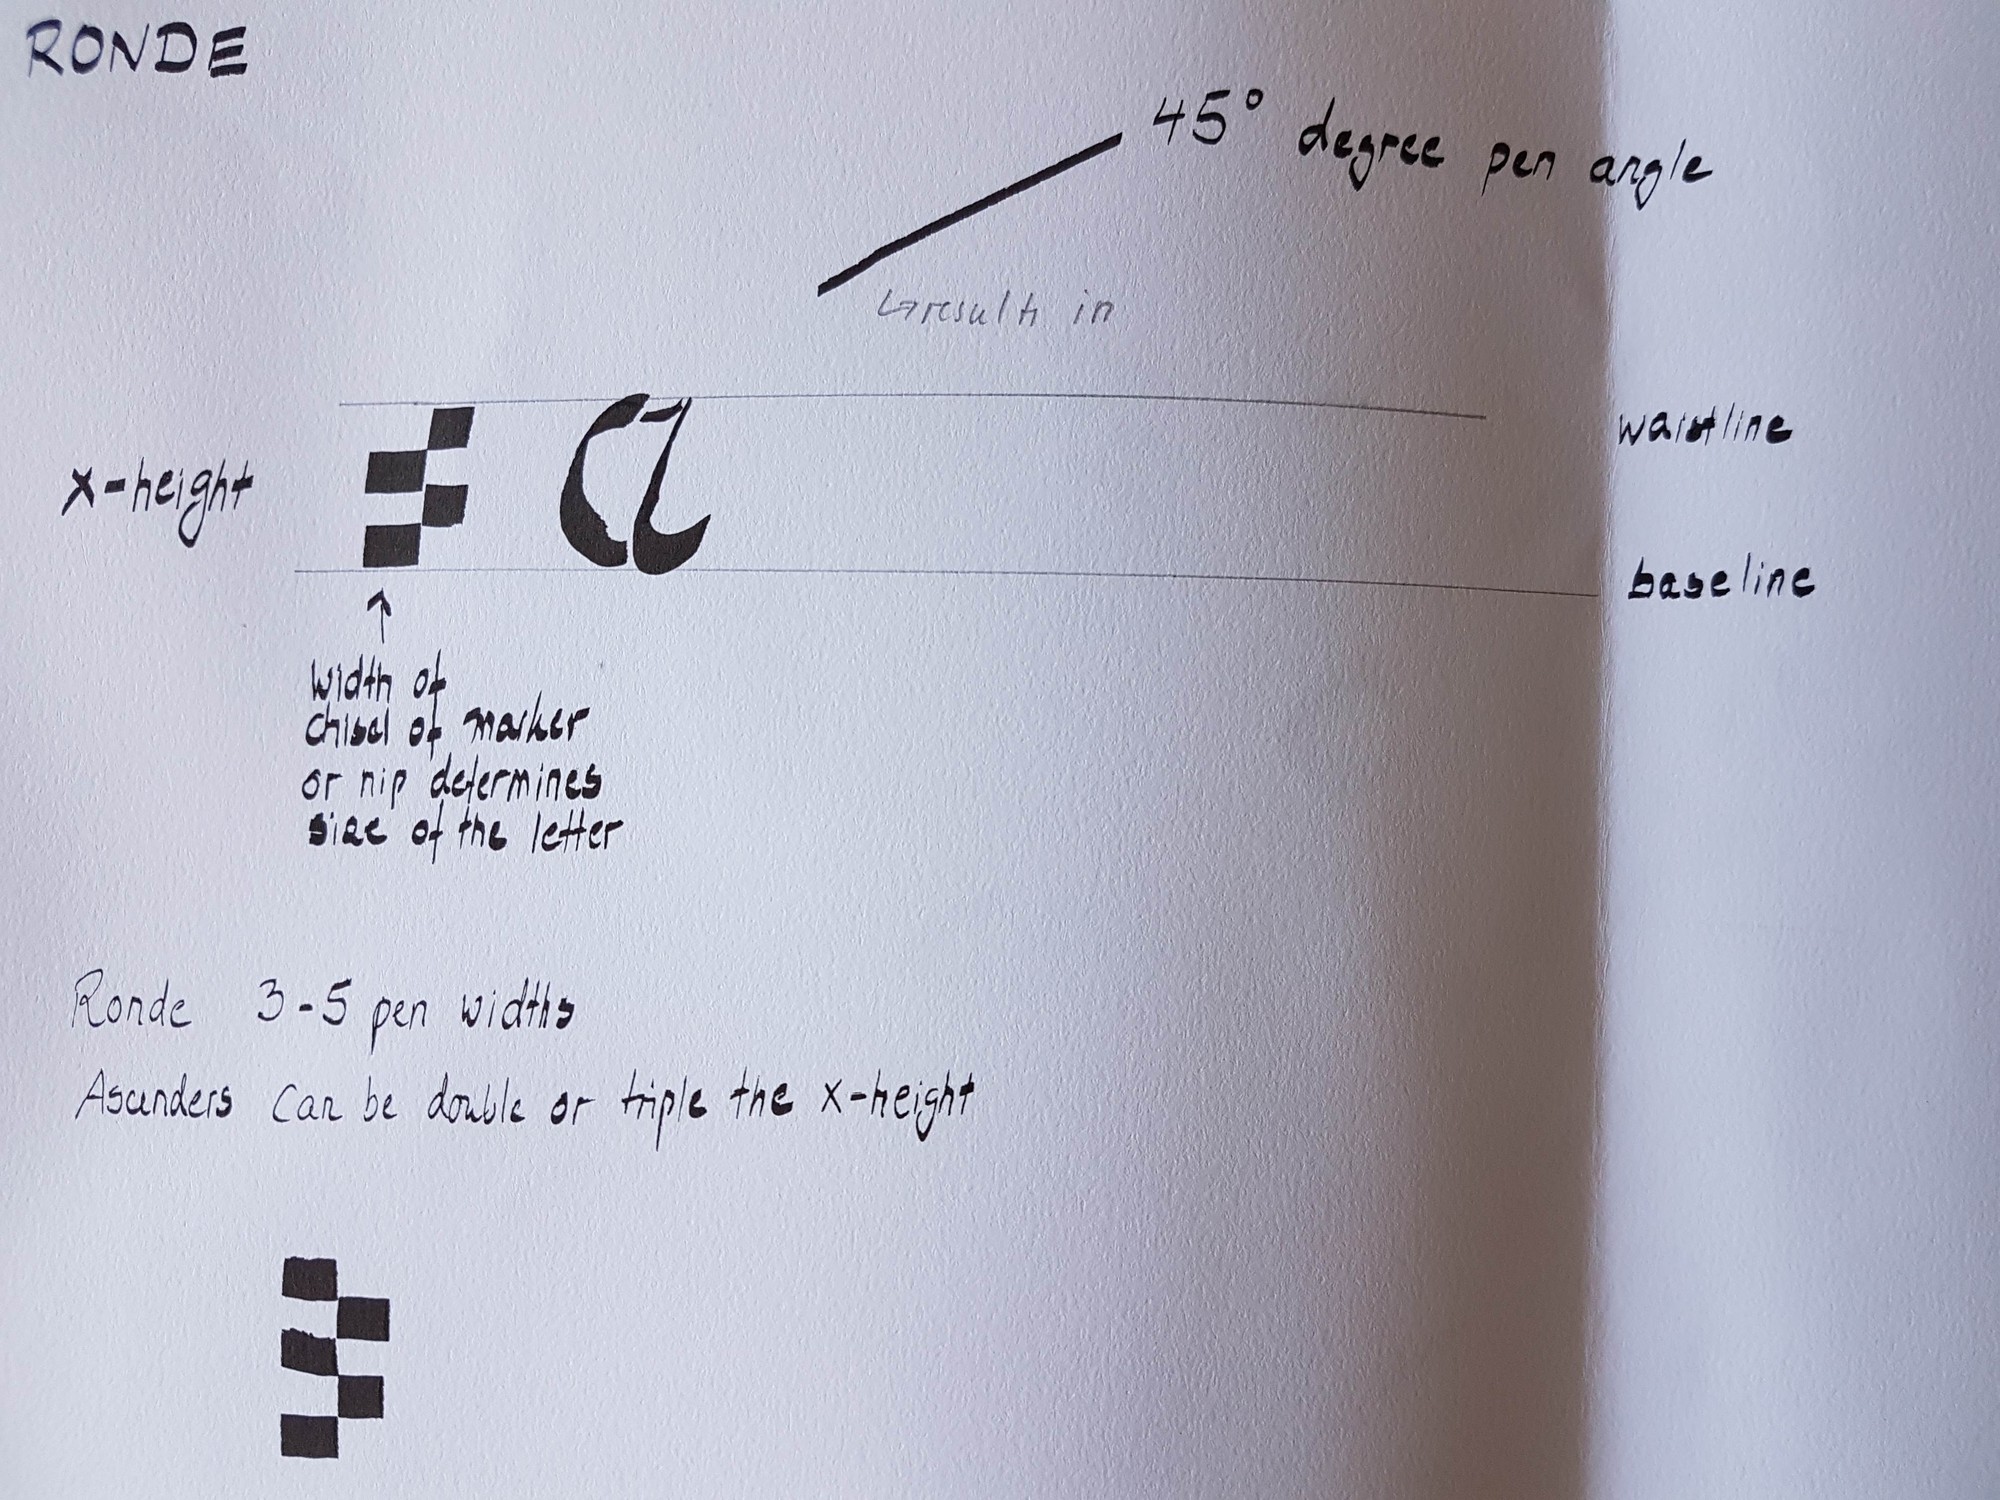 RONDE
45° degree pen angle
↳results in
waistline
x-height
a
baseline
↑
width of
chisel of marker
or nip determines
size of the letter
Ronde 3-5 pen widths
Ascenders can be double or triple the x-height